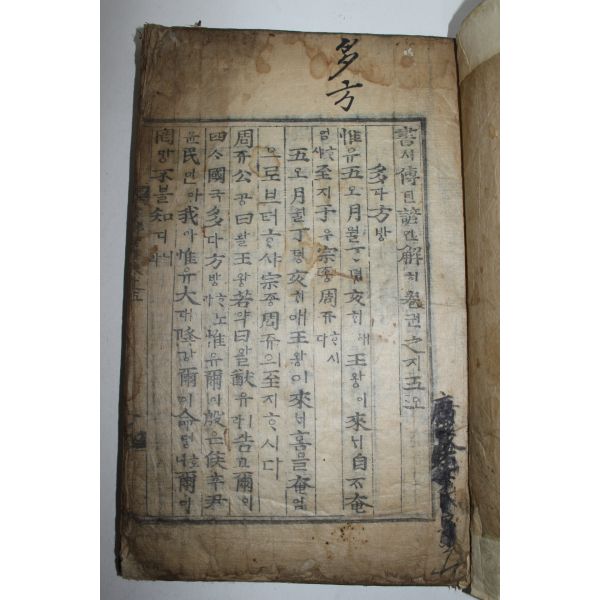 多方
書셔傳뎐諺언解ᄒᆡ卷권之지五오
多다方방
惟유五오月월丁뎡亥ᄒᆡ애王왕이來ᄅᆡ自ᄌᆞ奄
엄ᄒᆞ샤至지于우宗종周쥬ᄒᆞ시다
五오月월丁뎡亥ᄒᆡ애王왕이來ᄅᆡ홈을奄엄
으로브터ᄒᆞ샤宗종周쥬의至지ᄒᆞ시다
周쥬公공曰왈王왕若약曰왈猷유ㅣ라告고爾이
四ᄉᆞ國국多다方방ᄒᆞ노라惟유爾이殷은侯후尹
윤民민아我아惟유大대降강爾이命명ᄒᆞ니爾이
罔망不블知디니라